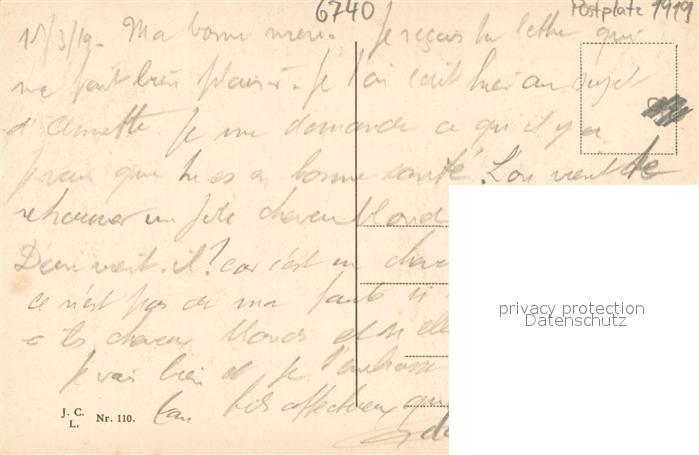 6740
Postplate 1919
15/3/19. Ma bonne mère. Je reçois ta lettre qui
me fait bien plaisir. Je t'ai écrit hier au sujet
d'Annette je me demande ce qu'il y a
je vois que tu es en bonne santé. L'on vient de
retrouver un joli cheveu blond
D'où vient-il? car c'est un
ce n'est pas de ma faute si
les cheveux blonds et si elle
Je vais bien et je t'embrasse
Ton fils affectueux qui
privacy protection
Datenschutz
J. C.
L.
Nr. 110.